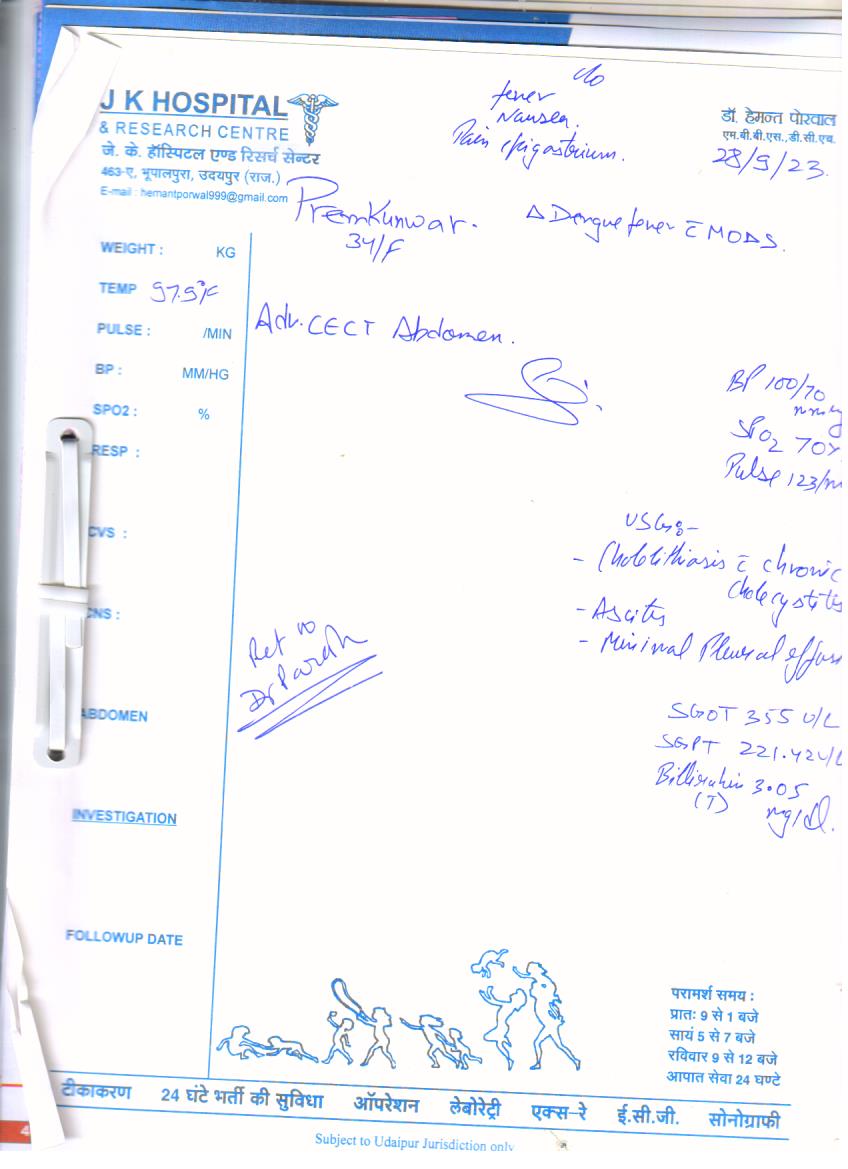 c/o
fever
Nausea.
Pain epigastrium.
J K HOSPITAL
& RESEARCH CENTRE
जे. के. हॉस्पिटल एण्ड रिसर्च सेन्टर
463-ए, भूपालपुरा, उदयपुर (राज.)
E-mail : hemantporwal999@gmail.com
डॉ. हेमन्त पोरवाल
एम.बी.बी.एस., डी.सी.एच.
28/9/23.
Premkunwar.
34/F
Δ Dengue fever c̄ MODS.
WEIGHT : KG
TEMP 97.9°F
PULSE : /MIN
BP : MM/HG
SPO2 : %
RESP :
CVS :
CNS :
ABDOMEN
INVESTIGATION
FOLLOWUP DATE
Adv. CECT Abdomen.
BP 100/70
SPO2 70%
Pulse 123/m
USG :-
- Cholelithiasis c̄ chronic
cholecystitis
- Ascites
- Minimal Pleural effus
Ref to
Dr
SGOT 355 U/L
SGPT 221.42 U/L
Billirubin 3.05
(T) mg/dl.
परामर्श समय :
प्रातः 9 से 1 बजे
सायं 5 से 7 बजे
रविवार 9 से 12 बजे
आपात सेवा 24 घण्टे
टीकाकरण 24 घंटे भर्ती की सुविधा ऑपरेशन लेबोरेट्री एक्स-रे ई.सी.जी. सोनोग्राफी
Subject to Udaipur Jurisdiction only
4